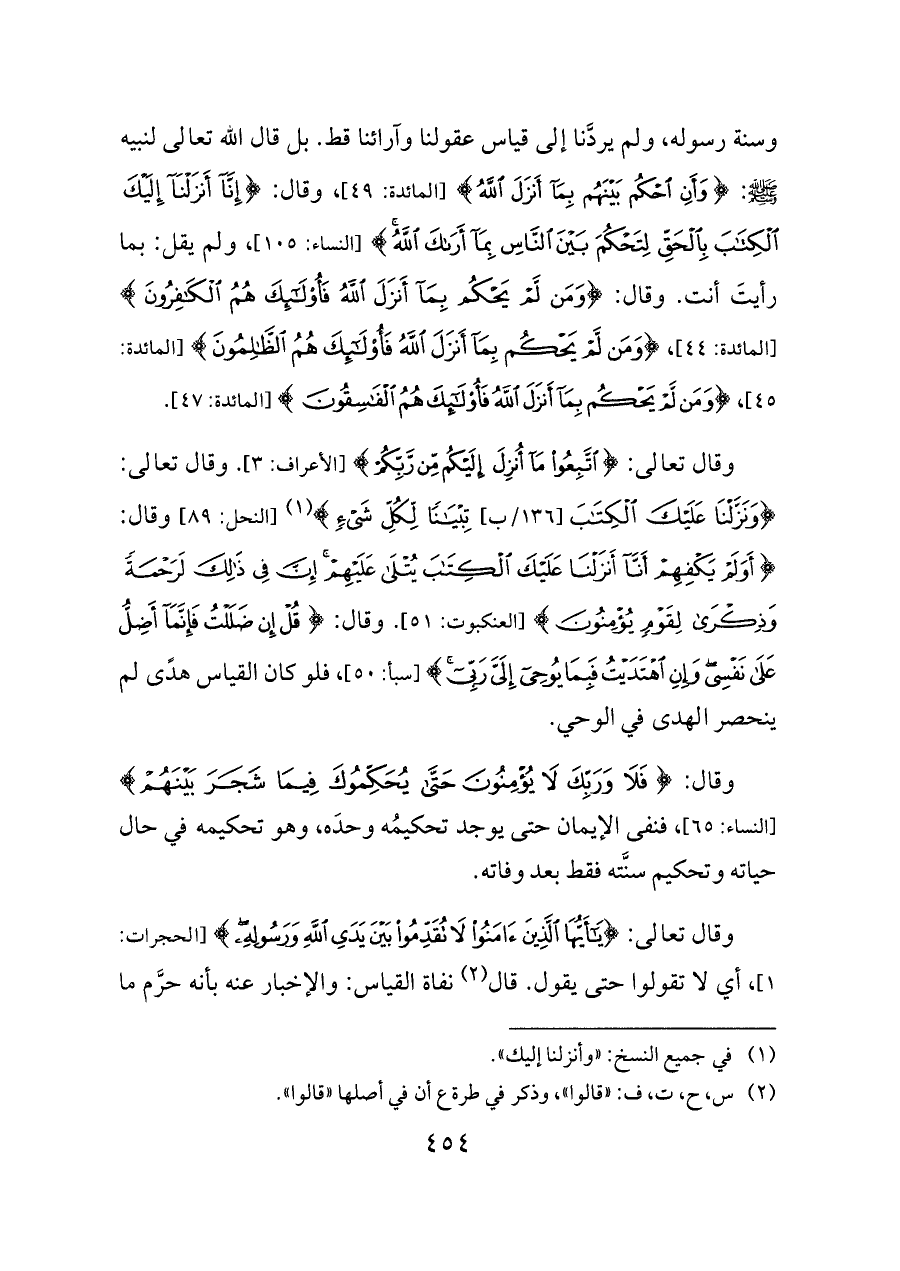 وسنة رسوله، ولم يردَّنا إلى قياس عقولنا وآرائنا قط. بل قال الله تعالى لنبيه
ﷺ: ﴿وَأَنِ ٱحۡكُم بَيۡنَهُم بِمَآ أَنزَلَ ٱللَّهُ﴾ [المائدة: ٤٩]، وقال: ﴿إِنَّآ أَنزَلۡنَآ إِلَيۡكَ
ٱلۡكِتَٰبَ بِٱلۡحَقِّ لِتَحۡكُمَ بَيۡنَ ٱلنَّاسِ بِمَآ أَرَىٰكَ ٱللَّهُۚ﴾ [النساء: ١٠٥]، ولم يقل: بما
رأيتَ أنت. وقال: ﴿وَمَن لَّمۡ يَحۡكُم بِمَآ أَنزَلَ ٱللَّهُ فَأُوْلَٰٓئِكَ هُمُ ٱلۡكَٰفِرُونَ﴾
[المائدة: ٤٤]، ﴿وَمَن لَّمۡ يَحۡكُم بِمَآ أَنزَلَ ٱللَّهُ فَأُوْلَٰٓئِكَ هُمُ ٱلظَّٰلِمُونَ﴾ [المائدة:
٤٥]، ﴿وَمَن لَّمۡ يَحۡكُم بِمَآ أَنزَلَ ٱللَّهُ فَأُوْلَٰٓئِكَ هُمُ ٱلۡفَٰسِقُونَ﴾ [المائدة: ٤٧].
وقال تعالى: ﴿ٱتَّبِعُواْ مَآ أُنزِلَ إِلَيۡكُم مِّن رَّبِّكُمۡ﴾ [الأعراف: ٣]. وقال تعالى:
﴿وَنَزَّلۡنَا عَلَيۡكَ ٱلۡكِتَٰبَ [١٣٦/ب] تِبۡيَٰنٗا لِّكُلِّ شَيۡءٖ﴾(١) [النحل: ٨٩] وقال:
﴿أَوَلَمۡ يَكۡفِهِمۡ أَنَّآ أَنزَلۡنَا عَلَيۡكَ ٱلۡكِتَٰبَ يُتۡلَىٰ عَلَيۡهِمۡۚ إِنَّ فِي ذَٰلِكَ لَرَحۡمَةٗ
وَذِكۡرَىٰ لِقَوۡمٖ يُؤۡمِنُونَ﴾ [العنكبوت: ٥١]. وقال: ﴿قُلۡ إِن ضَلَلۡتُ فَإِنَّمَآ أَضِلُّ
عَلَىٰ نَفۡسِيۖ وَإِنِ ٱهۡتَدَيۡتُ فَبِمَا يُوحِيٓ إِلَيَّ رَبِّيٓۚ﴾ [سبأ: ٥٠]، فلو كان القياس هدًى لم
ينحصر الهدى في الوحي.
وقال: ﴿فَلَا وَرَبِّكَ لَا يُؤۡمِنُونَ حَتَّىٰ يُحَكِّمُوكَ فِيمَا شَجَرَ بَيۡنَهُمۡ﴾
[النساء: ٦٥]، فنفى الإيمان حتى يوجد تحكيمُه وحدَه، وهو تحكيمه في حال
حياته وتحكيم سنَّته فقط بعد وفاته.
وقال تعالى: ﴿يَٰٓأَيُّهَا ٱلَّذِينَ ءَامَنُواْ لَا تُقَدِّمُواْ بَيۡنَ يَدَيِ ٱللَّهِ وَرَسُولِهِۦۖ﴾ [الحجرات:
١]، أي لا تقولوا حتى يقول. قال(٢) نفاة القياس: والإخبار عنه بأنه حرَّم ما
(١) في جميع النسخ: «وأنزلنا إليك».
(٢) س، ح، ت، ف: «قالوا»، وذكر في طرة ع أن في أصلها «قالوا».
٤٥٤